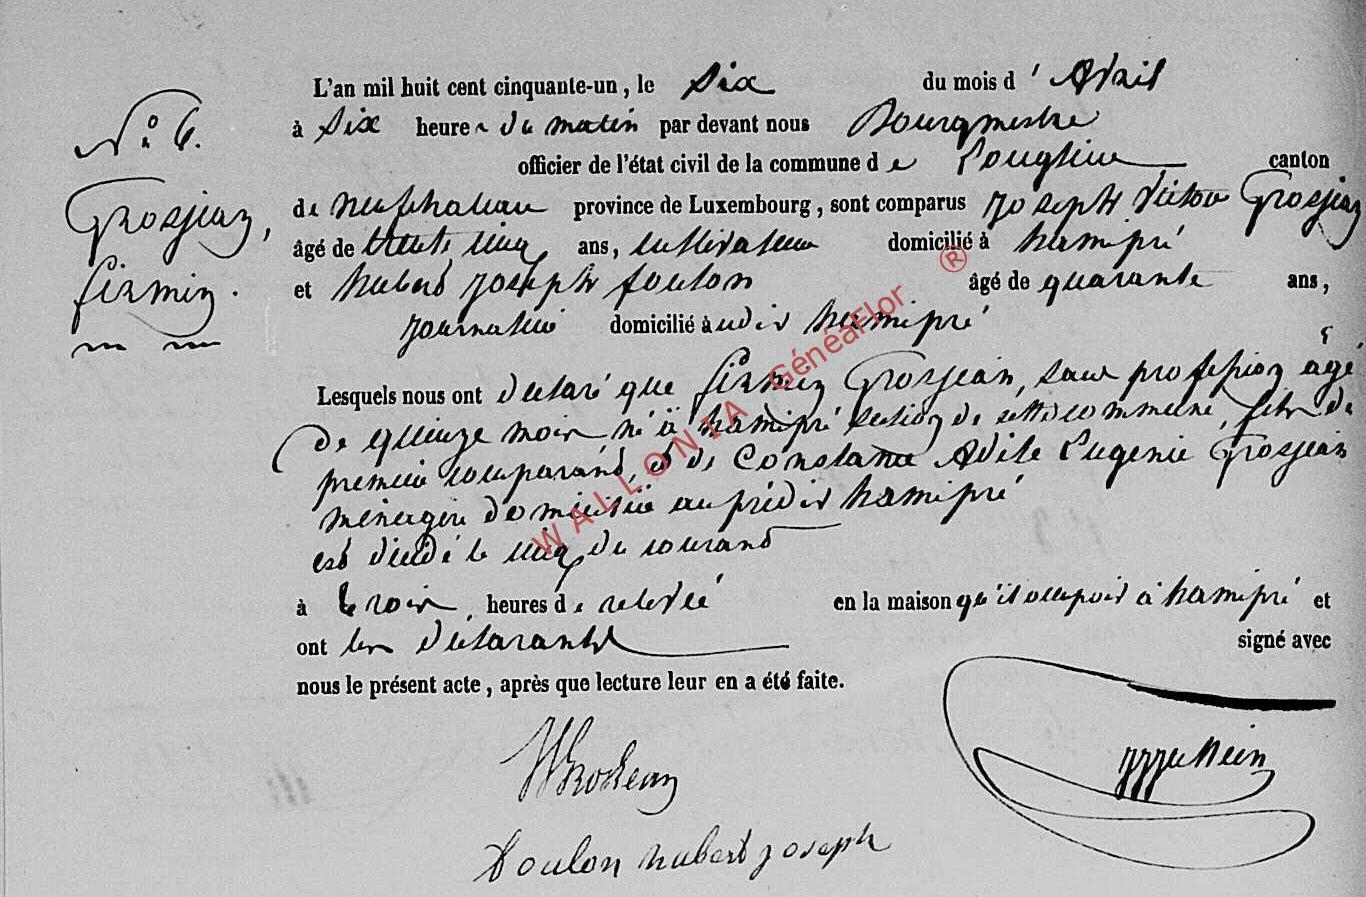 L'an mil huit cent cinquante-un, le six du mois d'Avril
N° 6. à six heures du matin par devant nous Bourgmestre
officier de l'état civil de la commune de Longlier canton
Grosjean, de neufchateau province de Luxembourg, sont comparus Joseph Victor Grosjean
âgé de trente cinq ans, cultivateur domicilié à hamipré
firmin. et hubert Joseph foulon âgé de quarante ans,
journalier domicilié audit hamipré
Lesquels nous ont déclaré que firmin Grosjean, sans profession âgé
de quinze mois né à hamipré section de cette commune, fils du
premier comparant, et de Constance Adèle Eugénie Grosjean
ménagère domiciliée au prédit hamipré
est décédé le cinq du courant
à trois heures de relevée en la maison qu'il occupoit à hamipré et
ont les déclarants signé avec
nous le présent acte, après que lecture leur en a été faite.
foulon hubert joseph
WALLONIA GénéaFlor ®